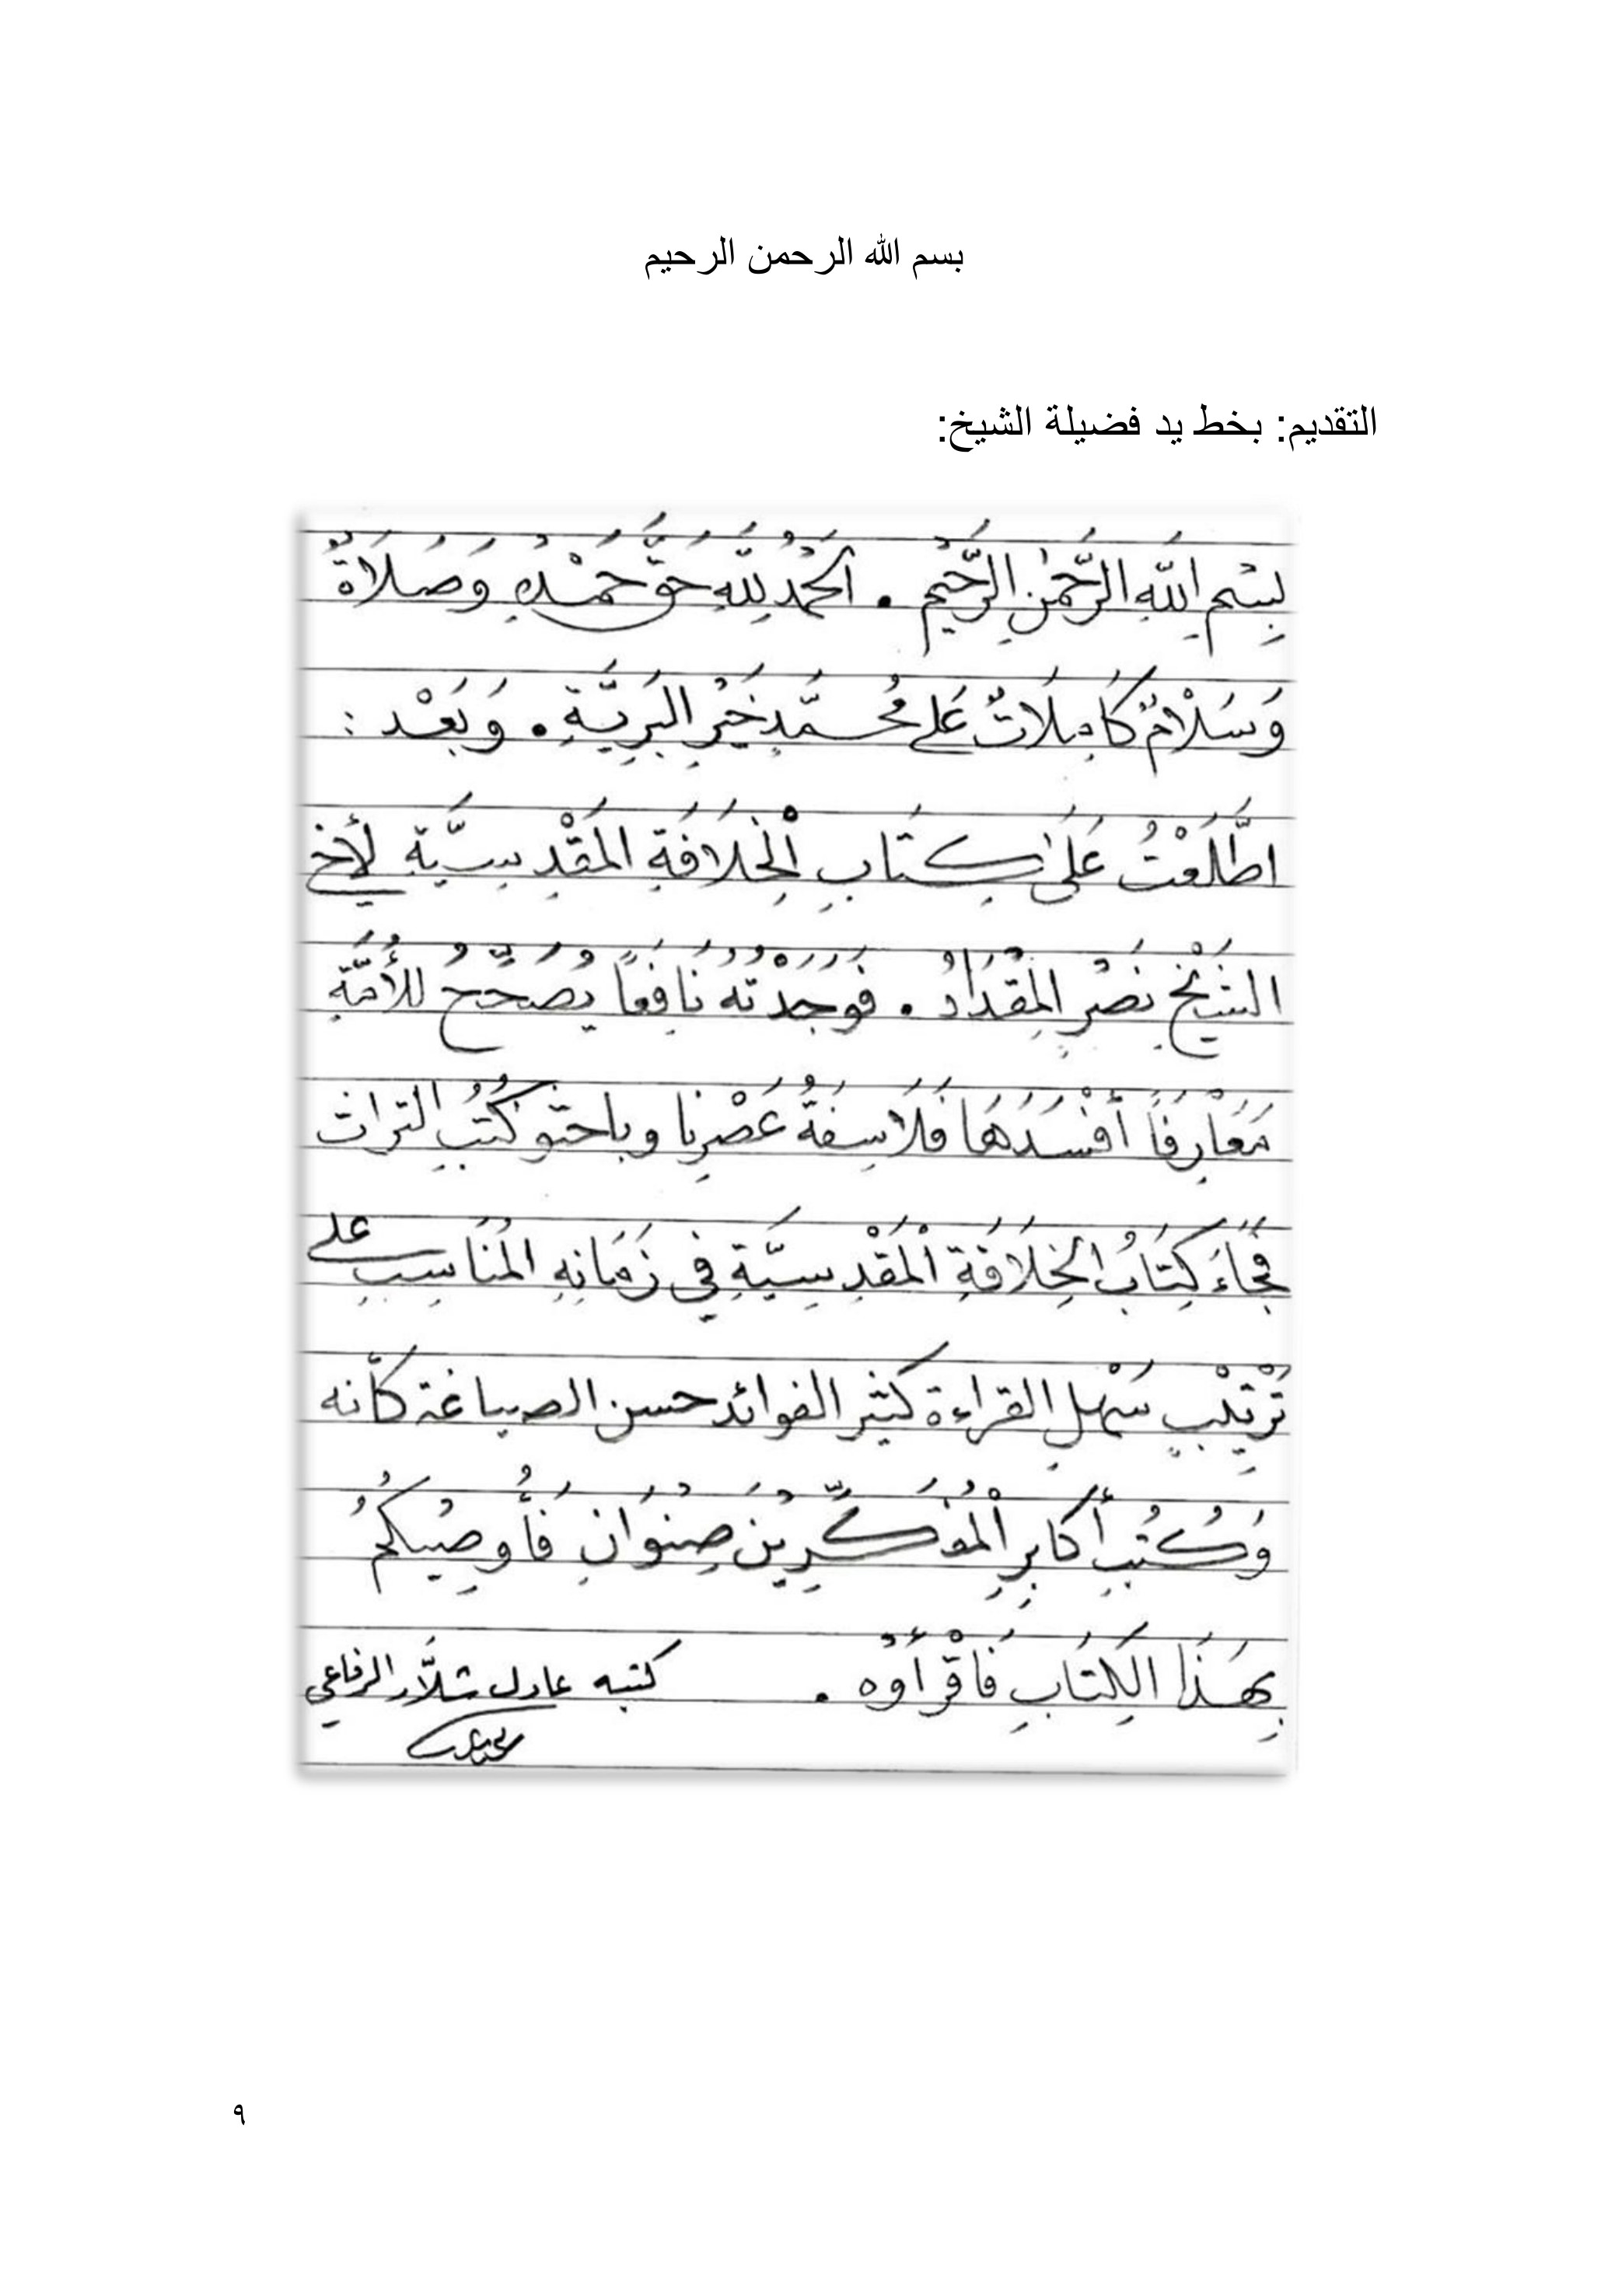 بسم الله الرحمن الرحيم
التقديم: بخط يد فضيلة الشيخ:
بِسْمِ اللهِ الرَّحْمٰنِ الرَّحِيْمِ . اَلْحَمْدُ لِلّٰهِ حَقَّ حَمْدِهِ وَصَلَاةٌ
وَسَلَامٌ كَامِلَاتٌ عَلَى مُحَمَّدٍ خَيْرِ الْبَرِيَّةِ . وَبَعْد :
اطَّلَعْتُ عَلَى كِتَابِ الْخِلَافَةِ الْمَقْدِسِيَّةِ لأخي
الشَّيْخِ نَصْرِ الْمِقْدَادِ . فَوَجَدْتُهُ نَافِعاً يُصَحِّحُ لِلأُمَّةِ
مَعَارِفاً أَفْسَدَهَا فَلَاسِفَةُ عَصْرِنَا وباحثو كُتُبِ التراث
فَجَاءَ كِتَابُ الخِلَافَةِ الْمَقْدِسِيَّةِ فِي زَمَانِهِ الْمُنَاسِبِ على
تَرْتِيْبٍ سَهْلِ القراءة كثير الفوائد حسن الصياغة كأنه
وَكُتُبِ أَكَابِرِ الْمُفَكِّرِيْنَ صِنْوَانِ فَأُوصِيْكُمُ
بِهَذَا الْكِتَابِ فَاقْرَأُوْهُ . كتبه عادل شلَّار الرفاعي
٩